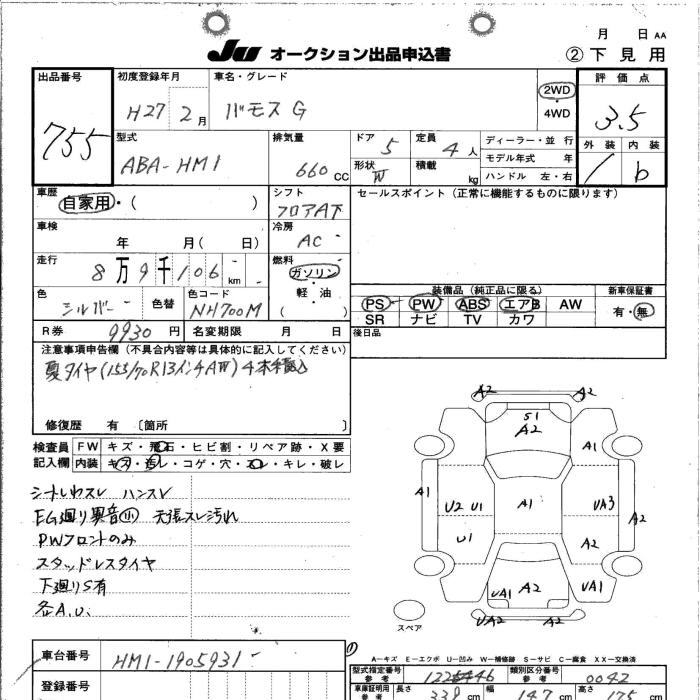 月 日 AA
JU オークション出品申込書 ② 下見用
出品番号 初度登録年月 車名・グレード 評価点
755 H27 2月 バモス G 2WD 4WD 3.5
型式 排気量 ドア 5 定員 4人 ディーラー・並行 外装 内装
ABA-HM1 660CC 形状 W 積載 kg モデル年式 年 b
ハンドル 左・右
車歴 自家用・( ) シフト フロアAT セールスポイント(正常に機能するものに限ります)
車検 年 月( 日) 冷房 AC
走行 8万9千106km 燃料 ガソリン
軽・油
( )
色 シルバー 色替 色コード NH700M
装備品(純正品に限る) 新車保証書
PS PW ABS エアB AW 有・無
SR ナビ TV カワ
R券 9930円 名変期限 月 日 後日品
注意事項申告欄(不具合内容等は具体的に記入してください)
夏タイヤ(155/70R13インチAW)4本積込
修復歴 有 〔箇所 〕
検査員 FW キズ・飛石・ヒビ割・リペア跡・X要
記入欄 内装 キズ・汚レ・コゲ・穴・スレ・キレ・破レ
シートしわスレ ハンスレ
EG廻り異音小 天張スレ汚れ
PWフロントのみ
スタッドレスタイヤ
下廻りS有
各A.U.
A2 A2
S1
A2 A1
A1 U2 U1 A1 UA3 A2
U1 A2
UA1 A2 UA1
UA2 A2
スペア
A-キズ E-エクボ U-凹み W-補修跡 S-サビ C-腐食 XX-交換済
車台番号 HM1-1905931
登録番号
型式指定番号 参考 類別区分番号 参考 0042
車庫証明用 参考 長さ 339cm 幅 147cm 高さ 175cm